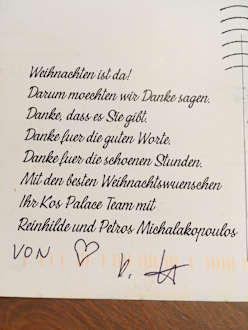 Weihnachten ist da!
Darum moechten wir Danke sagen.
Danke, dass es Sie gibt.
Danke fuer die guten Worte.
Danke fuer die schoenen Stunden.
Mit den besten Weihnachtswuenschen
Ihr Kos Palace Team mit
Reinhilde und Petros Michalakopoulos
VON ♡